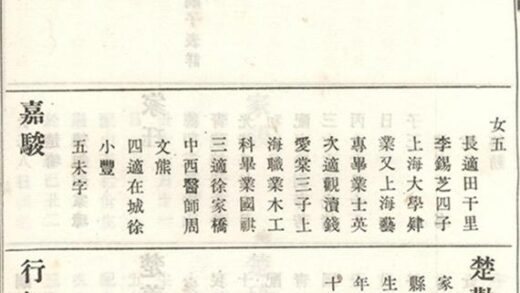 女五
長適田干里
李錫芝四子
上海大學肄
業又上海藝
專畢業士英
次適觀瀆錢
愛棠三子上
海職業木工
科畢業國祺
三適徐家橋
中西醫師周
文熊
四適在城徐
小豐
五未字
嘉駿
楚
家
縣
生
年
十
行